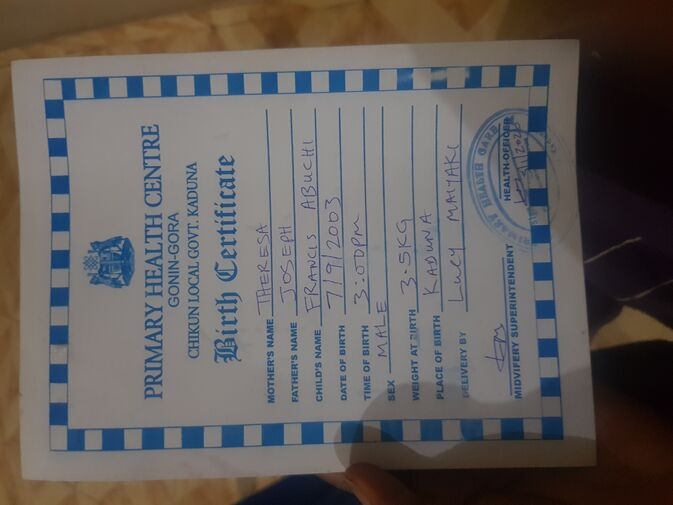 PRIMARY HEALTH CENTRE
GONIN-GORA
CHIKUN LOCAL GOVT. KADUNA
Birth Certificate
MOTHER'S NAME THERESA
FATHER'S NAME JOSEPH
CHILD'S NAME FRANCIS ABUCHI
DATE OF BIRTH 7/9/2003
TIME OF BIRTH 3:00PM
SEX MALE
WEIGHT AT BIRTH 3.5KG
PLACE OF BIRTH KADUNA
DELIVERY BY LUCY MAIYAKI
MIDVIFERY SUPERINTENDENT
HEALTH OFFICER
PRIMARY HEALTH CARE